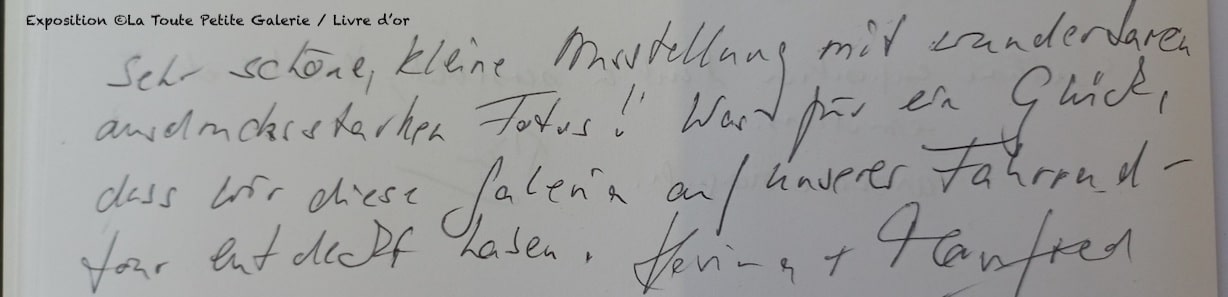 Exposition ©La Toute Petite Galerie / Livre d'or
Sehr schöne, kleine Ausstellung mit wunderbaren
ausdrucksstarken Fotos! Was für ein Glück,
dass wir diese Galerie auf unserer Fahrrad-
tour entdeckt haben. + Manfred